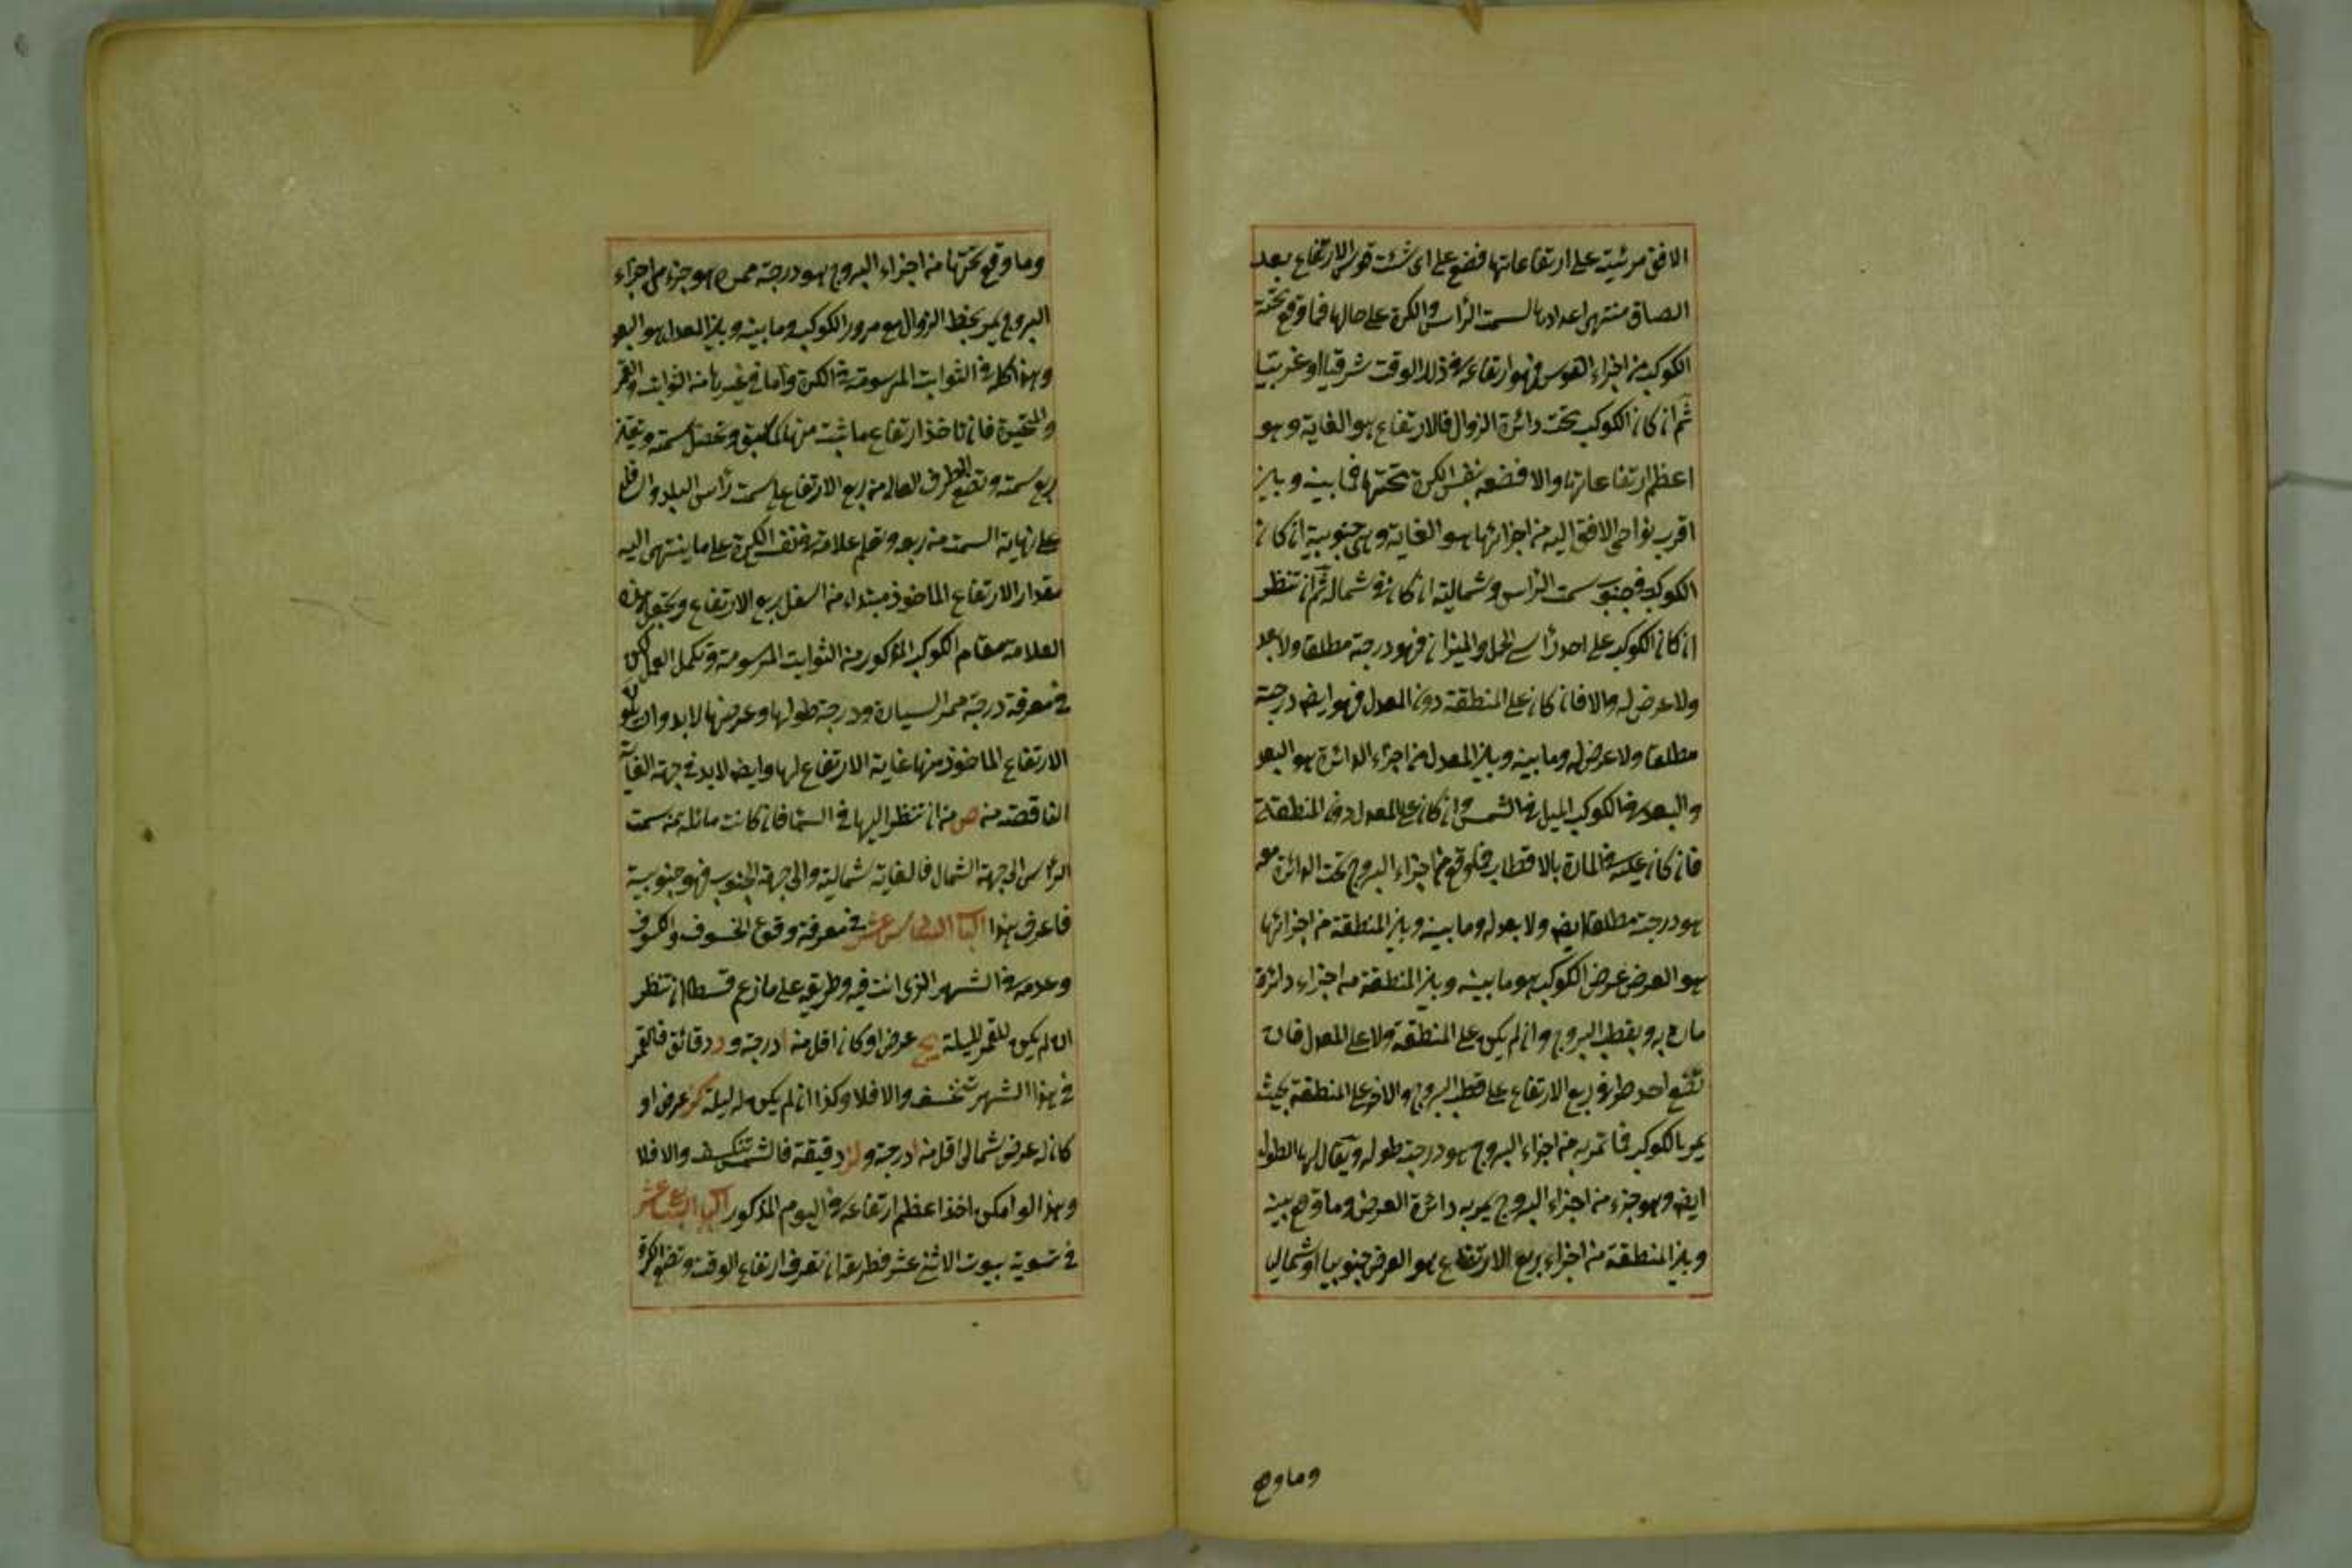 الافق مرئية على ارتفاعاتها فضع على اى شئت قوس الارتفاع بعد
الصاق منتهى اعدادها لسمت الرأس والكرة على حالها فما وقع تحته
الكوكب من اجزاء القوس فهو ارتفاعه فى ذلك الوقت شرقيا او غربيا
ثم ان كان الكوكب تحت دائرة الزوال فالارتفاع هو الغاية وهو
اعظم ارتفاعاتها والا فضعه بنفس الكرة تحتها فما بينه وبين
اقرب نواحى الافق اليه من اجزائها هو الغاية وهى جنوبية ان كان
الكوكب فى جنوب سمت الرأس وشمالية ان كان فى شماله ثم ان تنظر
ان كان الكوكب على احد رأسى الحمل والميزان فهو درجة مطلقا ولا بعد
ولا عرض له والا فان كان على المنطقة دون المعدل فهو ايضا درجة
مطلقا ولا عرض له وما بينه وبين المعدل من اجزاء الدائرة هو البعد
والبعد فى الكوكب الميل فى الشمس وان كان على المعدل دون المنطقة
فان كان عليه فى المارة بالاقطاب فما وقع من اجزاء البروج تحت الدائرة معه
هو درجة مطلقا ايضا ولا بعد له وما بينه وبين المنطقة من اجزائها
هو العرض عرض الكوكب هو ما بينه وبين المنطقة من اجزاء دائرة
مارة به وبقطب البروج وان لم يكن على المنطقة ولا على المعدل فان
تضع احد طرفى ربع الارتفاع على قطب البروج والاخر على المنطقة بحيث
يمر بالكوكب فما تمر به من اجزاء البروج هو درجة طوله ويقال لها الطول
ايضا وهو جزء من اجزاء البروج يمر به دائرة العرض وما وقع بينه
وبين المنطقة من اجزاء ربع الارتفاع هو العرض جنوبيا او شماليا
وما وقع
وما وقع تحتها من اجزاء البروج هو درجة ممره هو جزء من اجزاء
البروج يمر بخط الزوال مع مرور الكوكب وما بينه وبين المعدل هو البعد
وهذا كله فى الثوابت المرسومة فى الكرة واما فى غيرها من الثوابت والقمر
والمتحيرة فان تاخذ ارتفاع ما شئت منها كما سبق وتحصل سمته وتعين
ربع سمته وتضع الطرف العالى من ربع الارتفاع على سمت رأس البلد والسافل
على نهاية السمت من ربعه وتعلم علامة فى نفس الكرة على ما ينتهى اليه
مقدار الارتفاع الماخوذ مبتداء من اسفل ربع الارتفاع وتجعل هذه
العلامة مقام الكوكب المذكور من الثوابت المرسومة وتكمل العمل لكن
فى معرفة درجة ممر السيارة ودرجة طولها وعرضها لابد وان يكون
الارتفاع الماخوذ منها غاية الارتفاع لها وايضا لابد فى جهة الغاية
الناقصة من ص من ان تنظر اليها فى السماء فان كانت مائلة عن سمت
الرأس الى جهة الشمال فالغاية شمالية والى جهة الجنوب فهو جنوبية
فاعرف هذا الباب السادس عشر فى معرفة وقوع الخسوف والكسوف
وعدمه فى الشهر الذى انت فيه وطريقه على ما زعم قسطا ان تنظر
ان لم يكن للقمر لليلة يج عرض او كان اقل من ا درجة و د دقائق فالقمر
فى هذا الشهر تنخسف والا فلا وكذا ان لم يكن له ليلة كز عرض او
كان له عرض شمالى اقل من ا درجة و لز دقيقة فالشمس تنكسف والا فلا
وهذا لو امكن اخذ اعظم ارتفاعه فى اليوم المذكور الباب السابع عشر
فى تسوية بيوت الاثنى عشر فطريقه ان تعرف ارتفاع الوقت وتضع الكرة